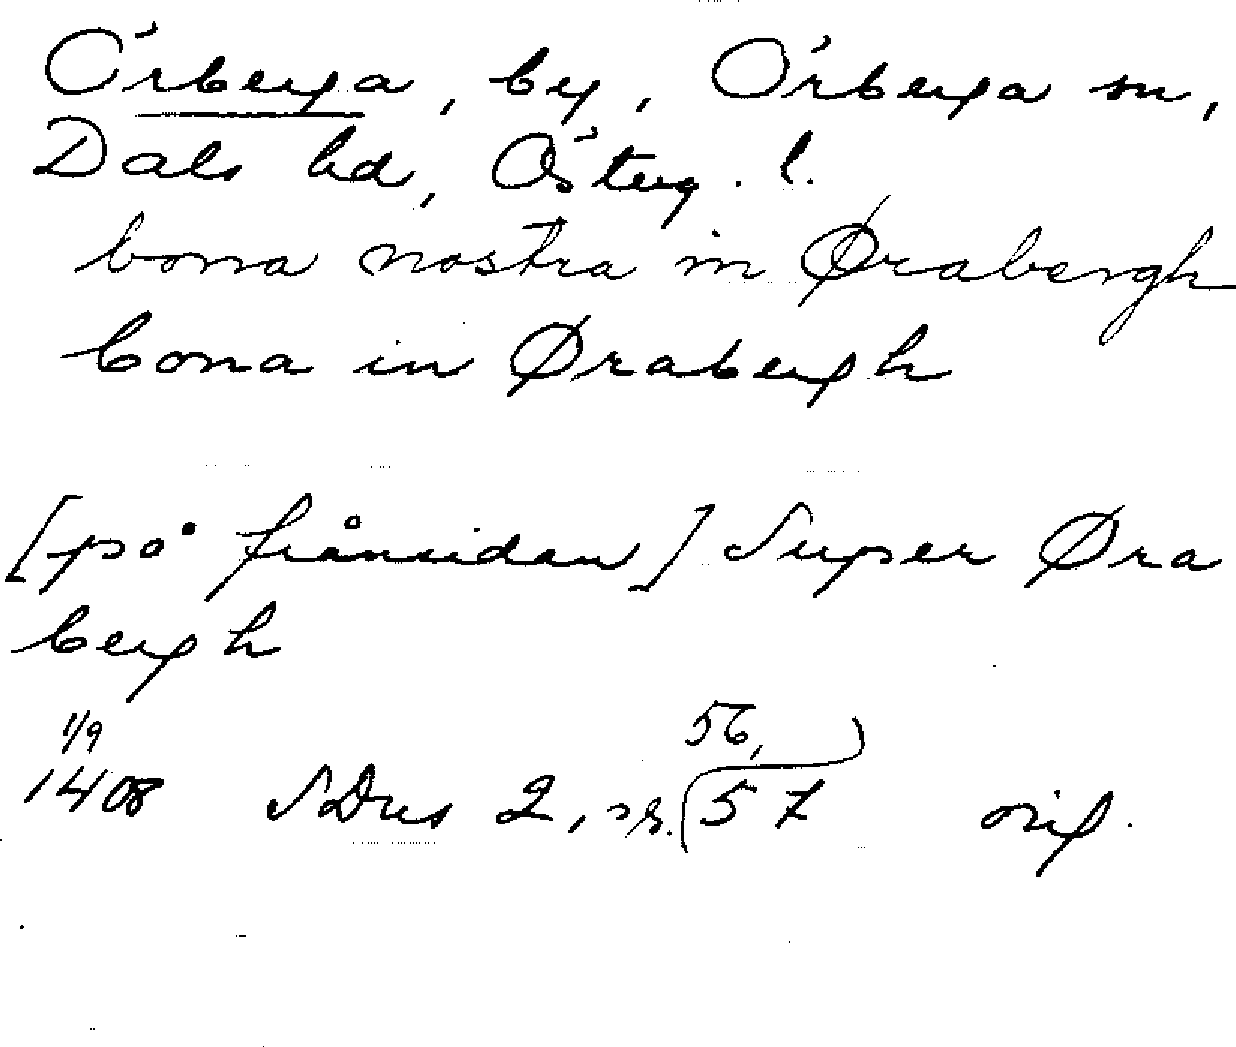 Örberga, by, Örberga sn,
Dals hd, Österg. l.
bona nostra in Ørabergh
bona in Ørabergh
[på frånsidan] Super Øra
bergh
1/9 56,
1408 SDns 2, nr. 57 orig.